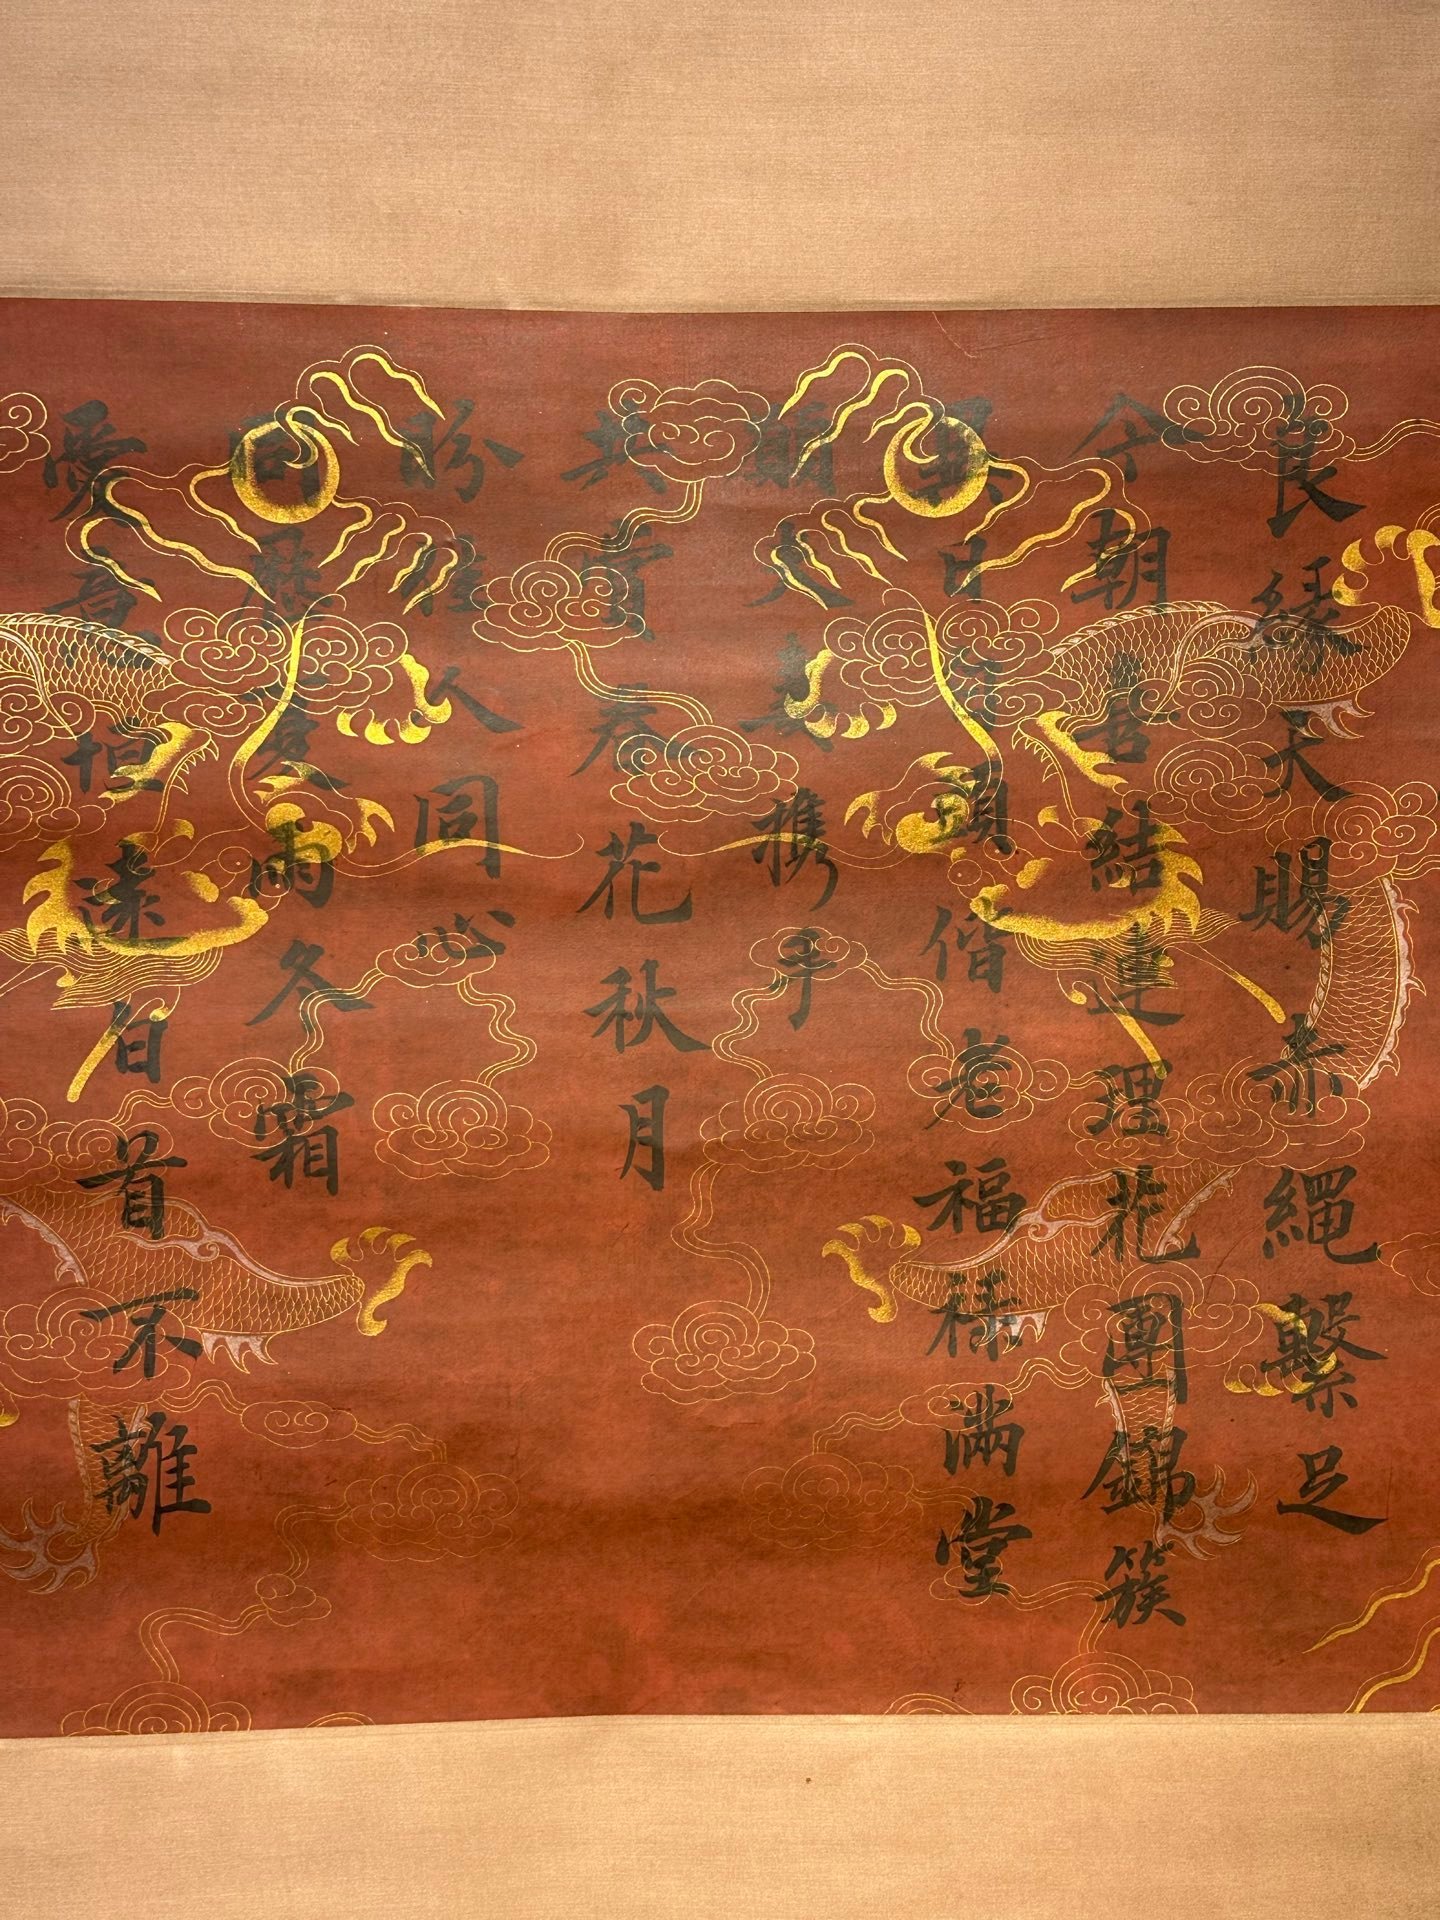 良緣天賜赤繩繫足
今朝喜結連理花團錦簇
異日白頭偕老福祿滿堂
願夫妻攜手
共賞春花秋月
盼佳人同心
同歷夏雨冬霜
愛意恒遠白首不離